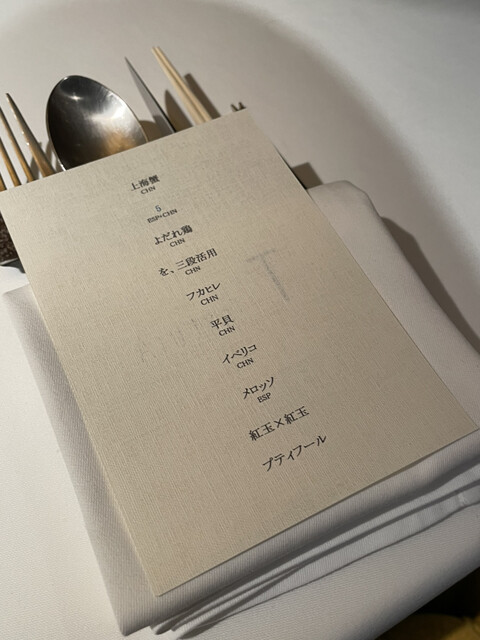 上海蟹
CHN
5
ESP×CHN
よだれ鶏
CHN
を、三段活用
CHN
フカヒレ
CHN
平貝
CHN
イベリコ
CHN
メロッソ
ESP
紅玉×紅玉
プティフール